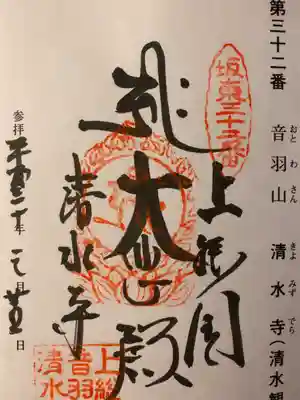 第三十二番 音羽山 清水寺(清水観
おとわさん きよみずでら
坂東三十二番
上総国
大悲殿
清水寺
参拝 平成二十年 月 日
上総
音羽
清水